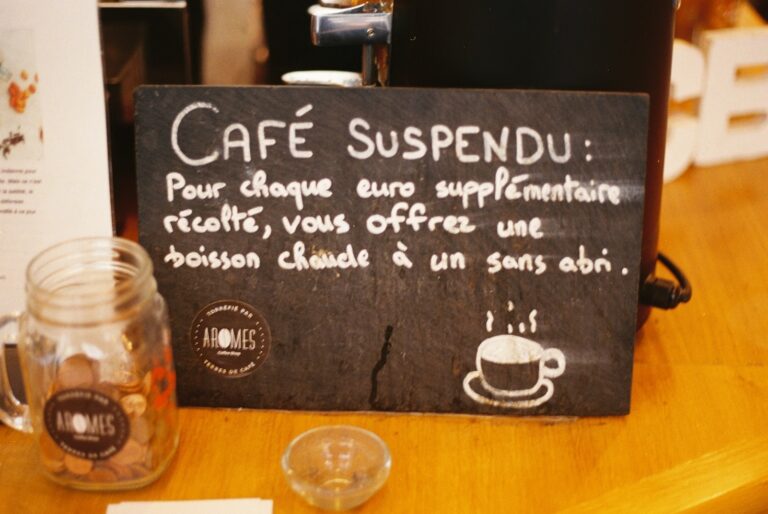 CAFÉ SUSPENDU :
Pour chaque euro supplémentaire
récolté, vous offrez une
boisson chaude à un sans abri.
TORRÉFIÉ PAR
AROMES
Coffee Shop
TERRES DE CAFÉ
TORRÉFIÉ PAR
AROMES
Coffee Shop
TERRES DE CAFÉ
CE